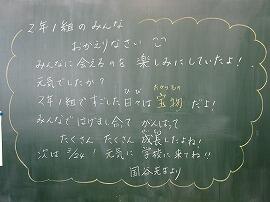 2年1組のみんな
おかえりなさい
みんなに会えるのを楽しみにしていたよ!
元気でしたか?
2年1組ですごした日々は宝物だよ!
ひび たからもの
みんなではげまし合って がんばって
たくさん たくさん 成長したよね!
次は 3/24! 元気に学校に来てね!!
国谷先生より